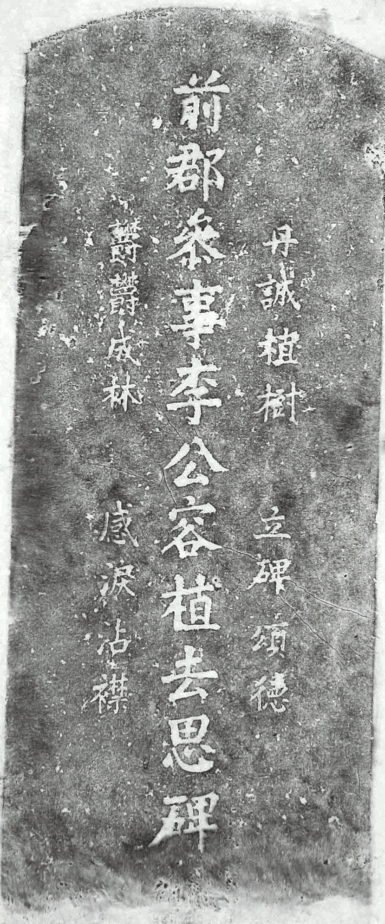 前郡叅事李公容植去思碑
丹誠植樹 立碑頌徳
欝欝成林 感淚沾襟